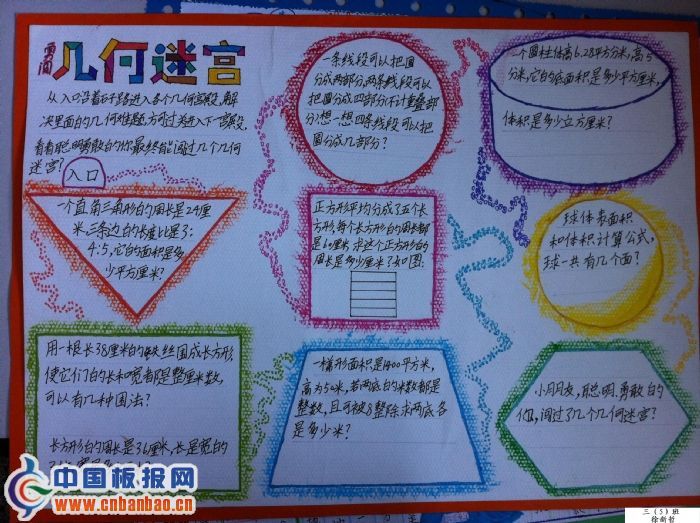 勇闯几何迷宫
从入口沿着石子路进入各个几何宫殿,解
决里面的几何难题,方可过关进入下一宫殿,
看看聪明勇敢的你最终能闯过几个几何
迷宫?
入口
一条线段可以把圆
分成两部分,两条线段可以
把圆分成四部分(不计重叠部
分)想一想四条线段可以把
圆分成几部分?
一个圆柱体高6.28平方分米,高5
分米,它的底面积是多少平方厘米,
体积是多少立方厘米?
一个直角三角形的周长是24厘
米,三条边的长度比是3:
4:5,它的面积是多
少平方厘米?
正方形平均分成了五个长
方形,每个长方形的周长都
是60厘米求这个正方形的
周长是多少厘米?如图:
球体表面积
和体积计算公式,
球一共有几个面?
用一根长38厘米的铁丝围成长方形,
使它们的长和宽都是整厘米数,
可以有几种围法?
长方形的周长是36厘米,长是宽的
一梯形面积是1400平方米,
高为50米,若两底的米数都是
整数,且可被8整除求两底各
是多少米?
小朋友,聪明、勇敢的
你,闯过了几个几何迷宫?
中国板报网
www.cnbanbao.cn
三(5)班